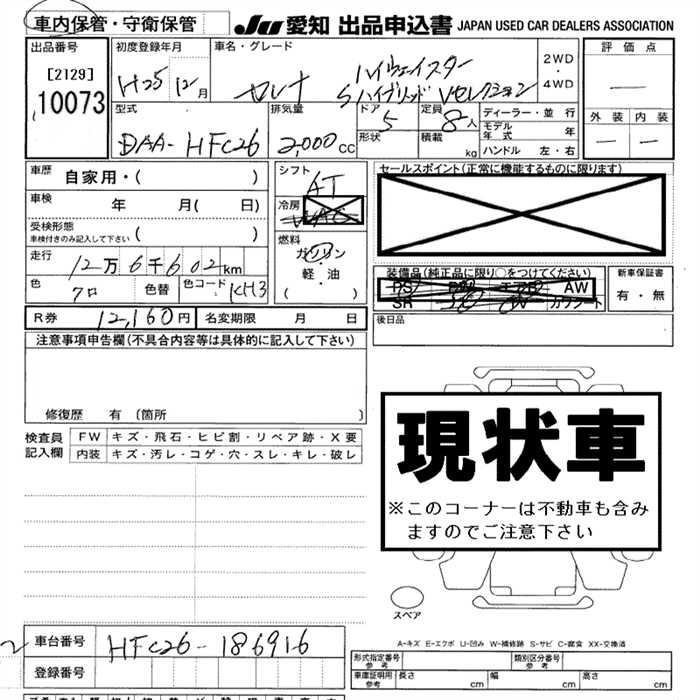 車内保管・守衛保管
JU 愛知 出品申込書 JAPAN USED CAR DEALERS ASSOCIATION
出品番号
[2129]
10073
初度登録年月
H25年12月
車名・グレード
セレナ ハイウェイスター
Sハイブリッド Vセレクション
2WD
・
4WD
評価点
―
外装 内装
― ―
型式
DAA-HFC26
排気量
2,000cc
ドア
5
形状
定員
8人
積載
kg
ディーラー・並行
モデル年式 年
ハンドル 左・右
車歴 自家用・( )
車検 年 月( 日)
受検形態
車検付きのみ記入して下さい ( )
走行 12万6千602km
色 クロ 色替 色コード KH3
シフト AT
冷房
燃料
ガソリン
・
軽・油
( )
セールスポイント(正常に機能するものに限ります)
装備品(純正品に限り○をつけてください)
PS AW
SR カワシート
新車保証書
有・無
後日品
R券 12,160円 名変期限 月 日
注意事項申告欄(不具合内容等は具体的に記入して下さい)
修復歴 有 (箇所 )
検査員
記入欄
FW キズ・飛石・ヒビ割・リペア跡・X要
内装 キズ・汚レ・コゲ・穴・スレ・キレ・破レ
現状車
※このコーナーは不動車も含み
ますのでご注意下さい
スペア
A-キズ E-エクボ U-凹み W-補修跡 S-サビ C-腐食 XX-交換済
2
車台番号 HFC26-186916
登録番号
形式指定番号
参考
類別区分番号
参考
車庫証明用
参考
長さ cm 幅 cm 高さ cm